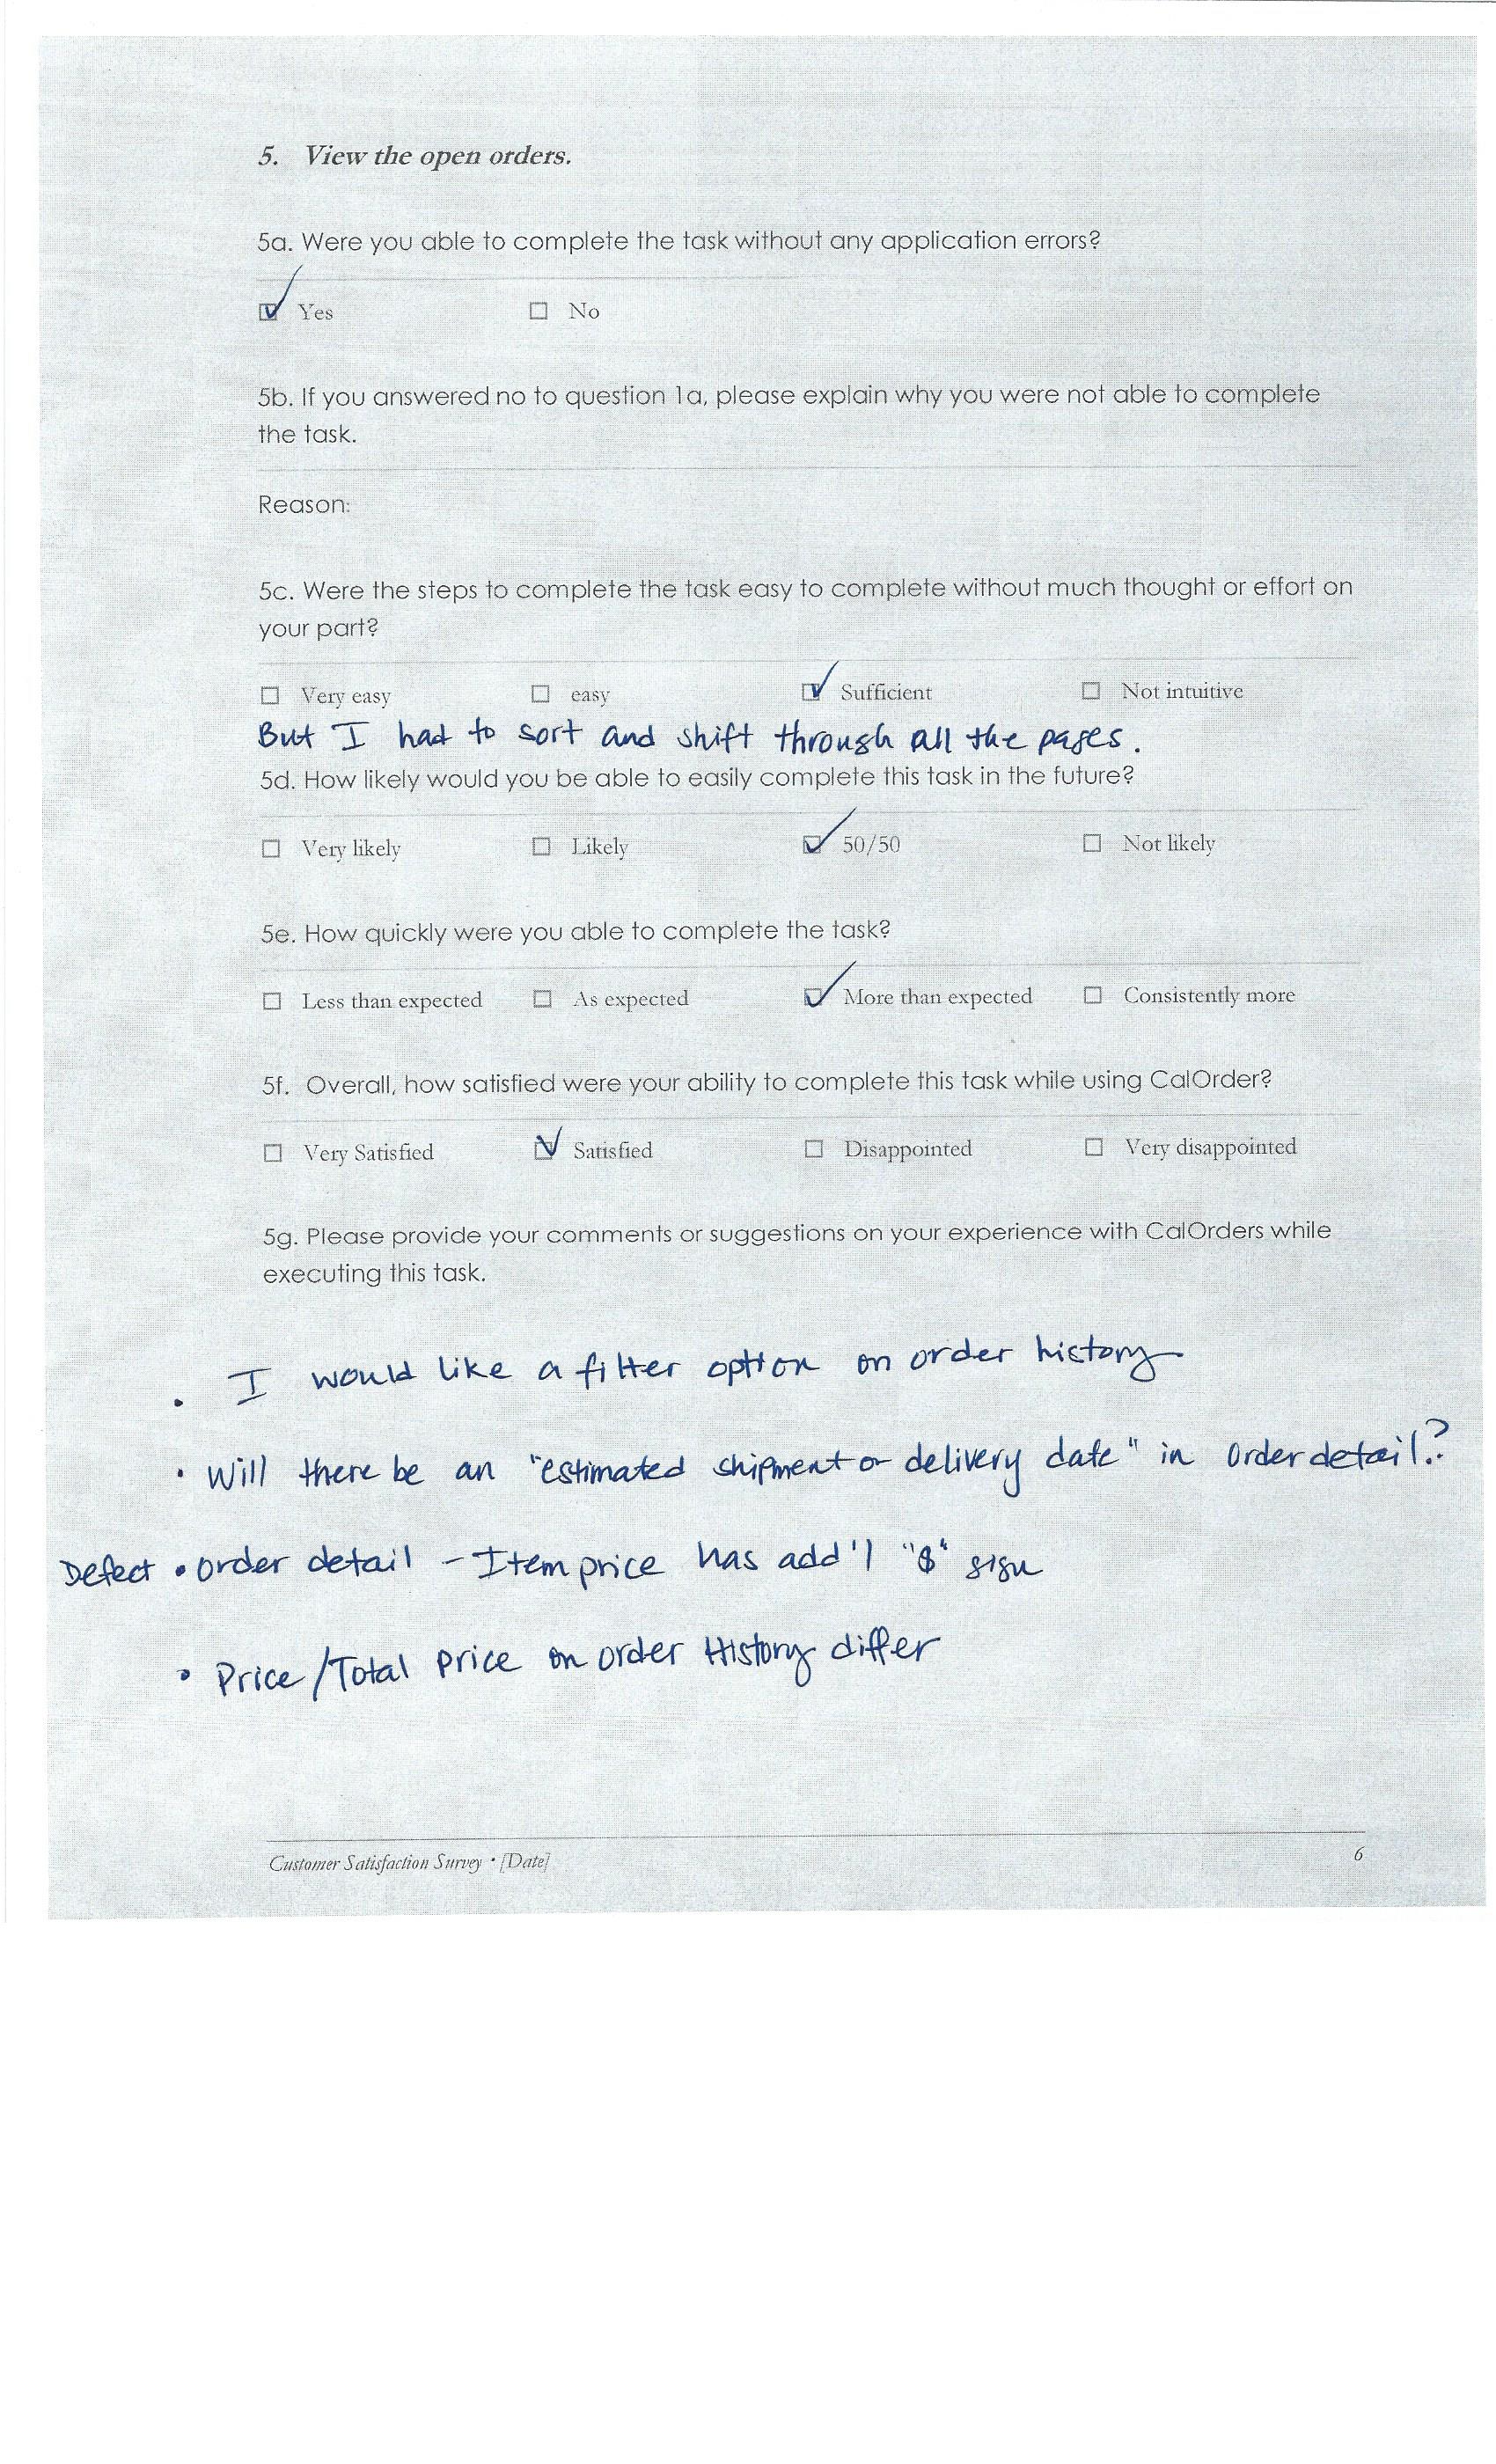 5. View the open orders.
5a. Were you able to complete the task without any application errors?
☑ Yes ☐ No
5b. If you answered no to question 1a, please explain why you were not able to complete
the task.
Reason:
5c. Were the steps to complete the task easy to complete without much thought or effort on
your part?
☐ Very easy ☐ easy ☑ Sufficient ☐ Not intuitive
But I had to sort and shift through all the pages.
5d. How likely would you be able to easily complete this task in the future?
☐ Very likely ☐ Likely ☑ 50/50 ☐ Not likely
5e. How quickly were you able to complete the task?
☐ Less than expected ☐ As expected ☑ More than expected ☐ Consistently more
5f. Overall, how satisfied were your ability to complete this task while using CalOrder?
☐ Very Satisfied ☑ Satisfied ☐ Disappointed ☐ Very disappointed
5g. Please provide your comments or suggestions on your experience with CalOrders while
executing this task.
• I would like a filter option on order history
• Will there be an "estimated shipment or delivery date" in order detail?
Defect • order detail - Item price has add'l "$" sign
• Price/Total price on order History differ
Customer Satisfaction Survey • [Date] 6